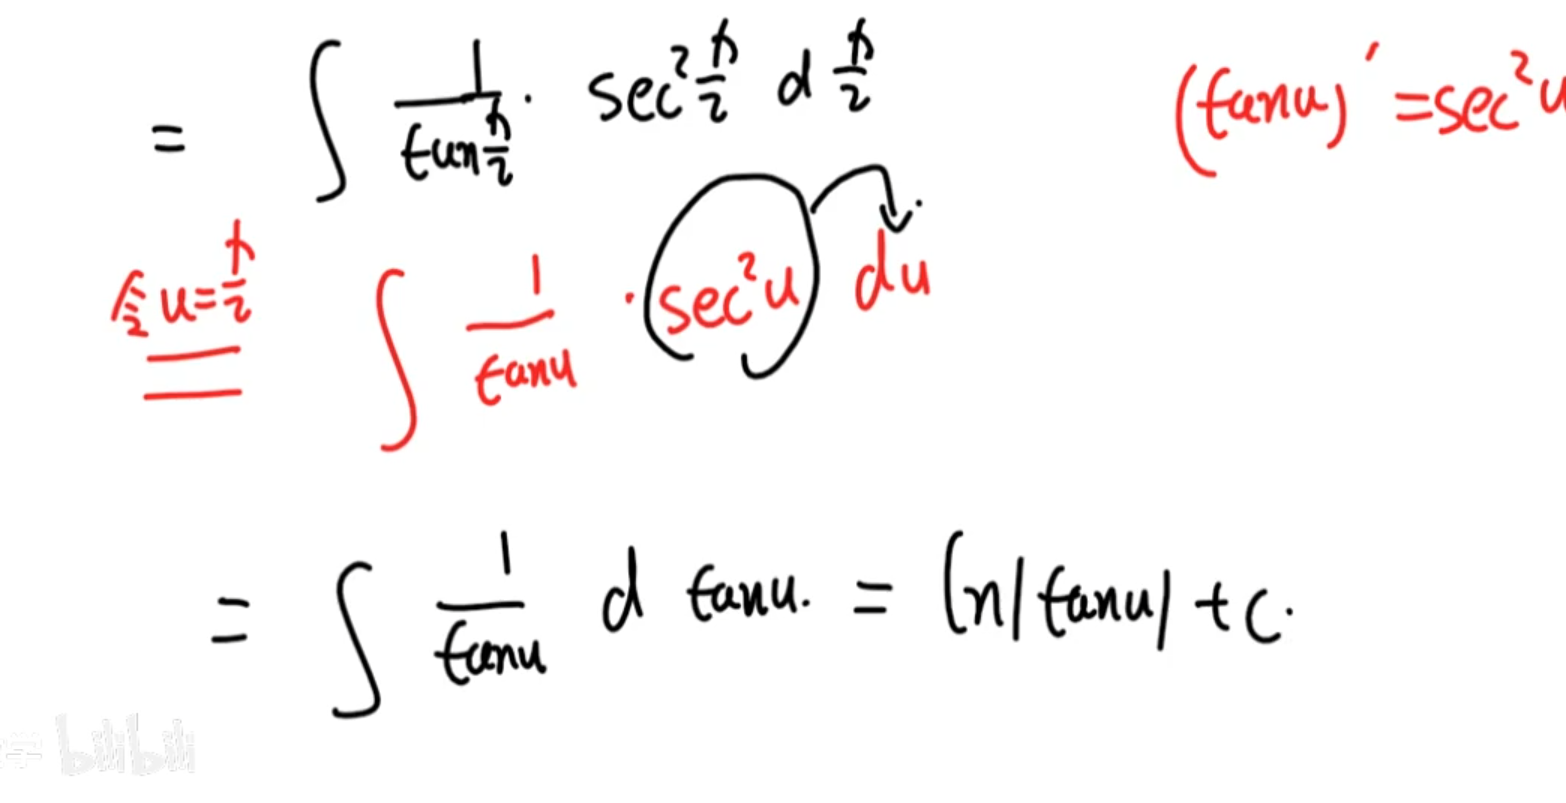 = ∫ 1/tan x/2 · sec² x/2 d x/2 (tanu)' = sec²u
令 u = x/2 = ∫ 1/tanu · sec²u du
= ∫ 1/tanu d tanu. = ln|tanu| + c.
学 bilibili